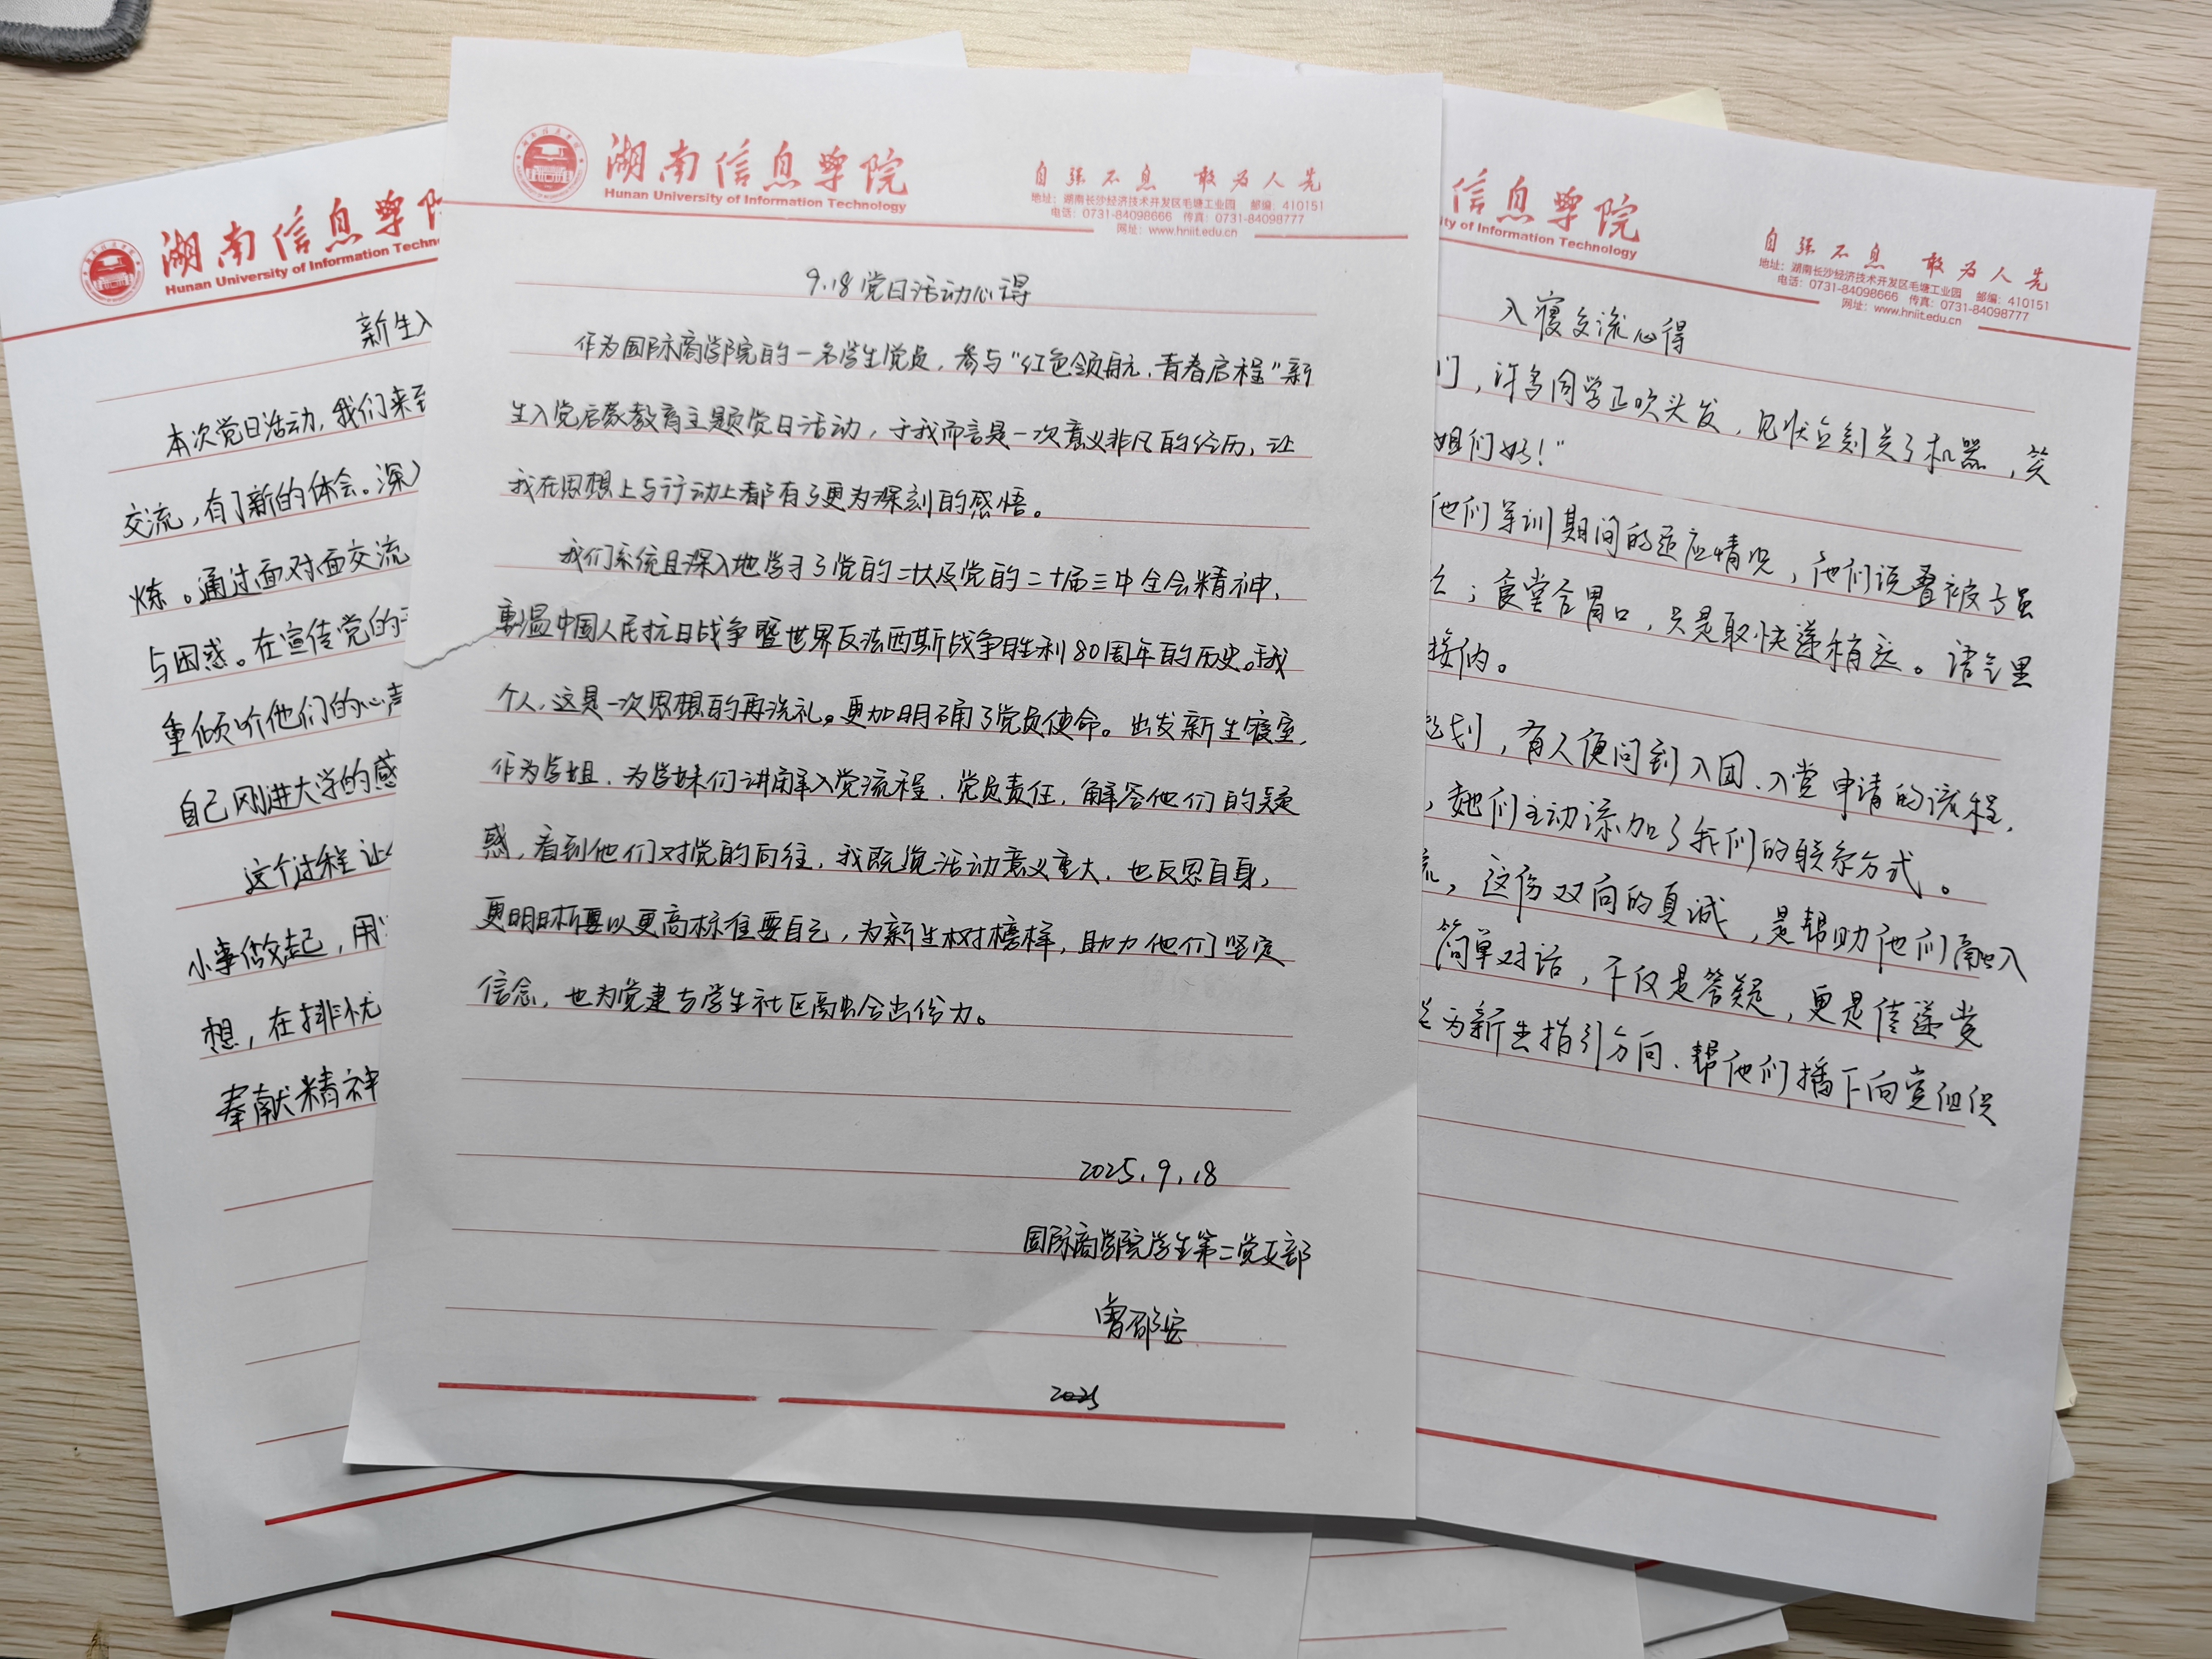 湖南信息学
Hunan University of Information Techn
新生入
本次党日活动,我们来到
交流,有了新的体会。深入
炼。通过面对面交流
与困惑。在宣传党的
重倾听他们的心声
自己刚进大学的感
这个过程让
小事做起,用
想,在排忧
奉献精神
湖南信息学院
Hunan University of Information Technology
自强不息 敢为人先
地址:湖南长沙经济技术开发区毛塘工业园 邮编:410151
电话:0731-84098666 传真:0731-84098777
网址:www.hniit.edu.cn
9.18党日活动心得
作为国际商学院的一名学生党员,参与“红色领航,青春启程”新
生入党启蒙教育主题党日活动,于我而言是一次意义非凡的经历,让
我在思想上与行动上都有了更为深刻的感悟。
我们系统且深入地学习了党的二十大及党的二十届三中全会精神,
重温中国人民抗日战争暨世界反法西斯战争胜利80周年的历史。于我
个人,这是一次思想的再洗礼。更加明确了党员使命。出发新生寝室,
作为学姐,为学妹们讲解入党流程,党员责任,解答他们的疑
惑,看到他们对党的向往,我既觉活动意义重大,也反思自身,
更明晰要以更高标准要自己,为新生树榜样,助力他们坚定
信念,也为党建与学生社区融合出份力。
2025.9.18
国际商学院学生第二党支部
2025
信息学院
ity of Information Technology
自强不息 敢为人先
地址:湖南长沙经济技术开发区毛塘工业园 邮编:410151
电话:0731-84098666 传真:0731-84098777
网址:www.hniit.edu.cn
入寝交流心得
门,许多同学正吹头发,见状立刻关了机器,笑
姐们好!”
他们军训期间的适应情况,他们说叠被子虽
;食堂合胃口,只是取快递稍远。语气里
接纳。
划,有人便问到入团、入党申请的流程,
,她们主动添加了我们的联系方式。
流,这份双向的真诚,是帮助他们融入
简单对话,不仅是答疑,更是传递党
为新生指引方向、帮他们播下向党组织